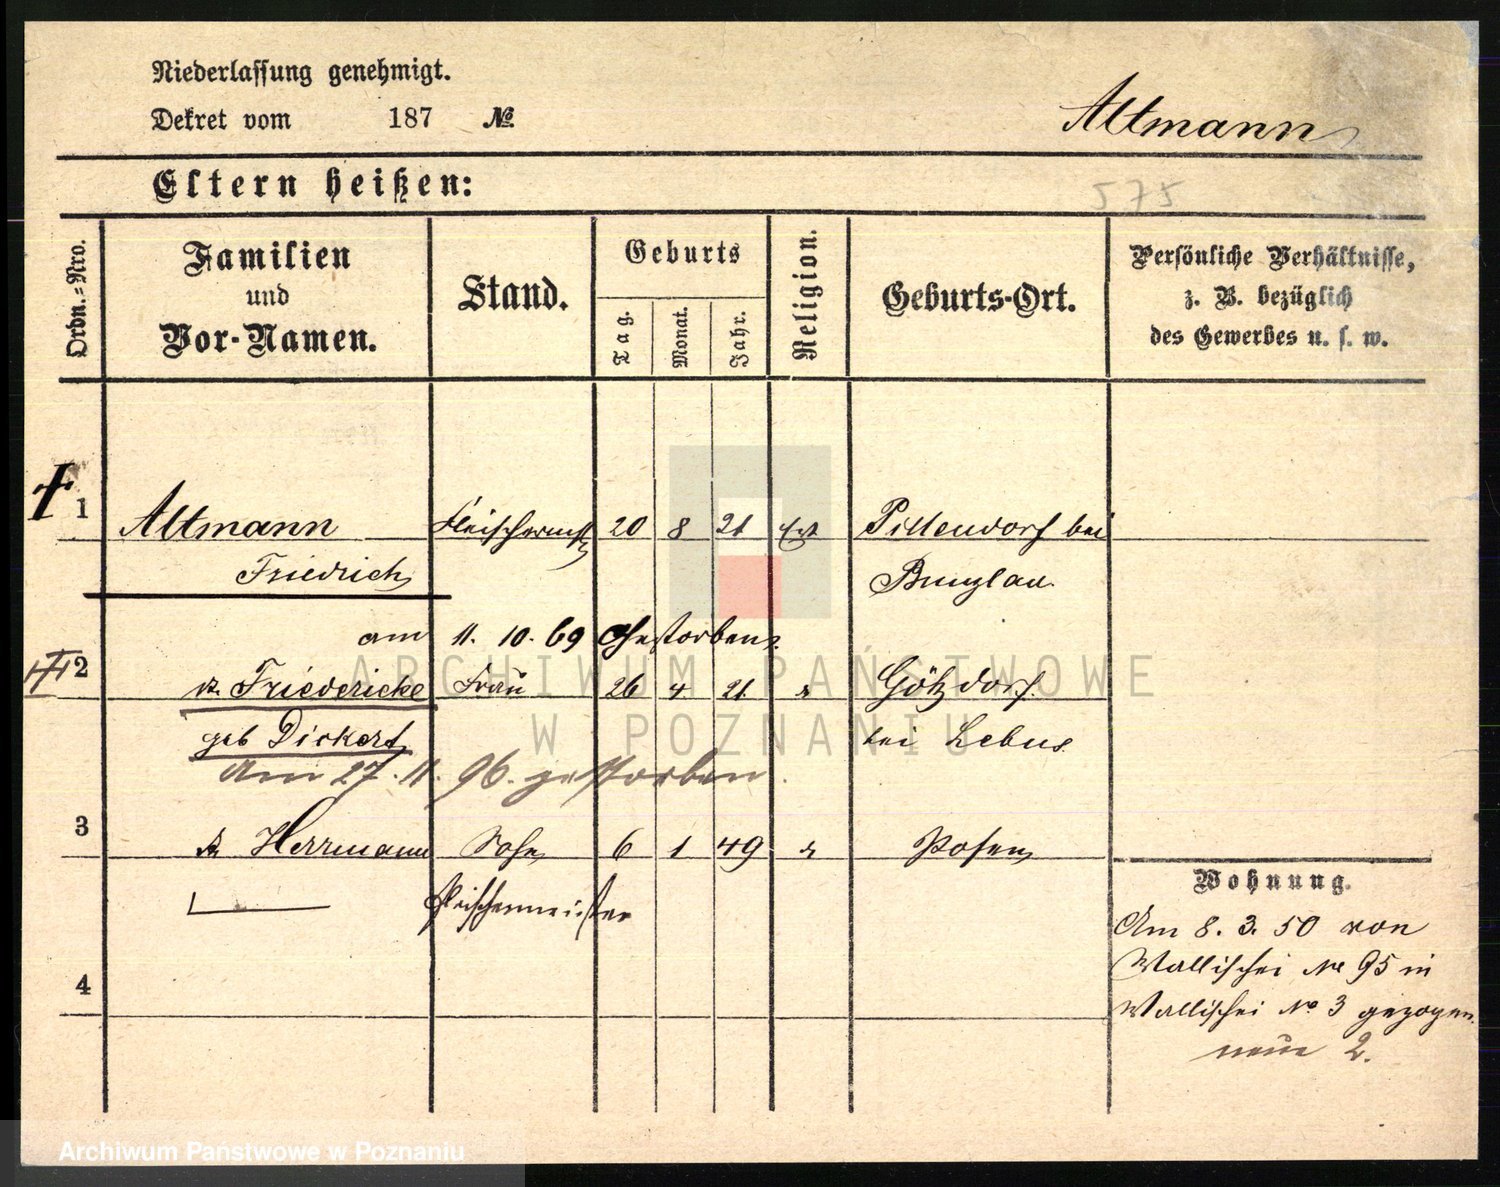 Niederlassung genehmigt.
Dekret vom 187 №
Altmann
Eltern heißen:
575
Ordn.-Nro.
Familien und Vor-Namen.
Stand.
Geburts
Tag.
Monat.
Jahr.
Religion.
Geburts-Ort.
Persönliche Verhältnisse,
z. B. bezüglich
des Gewerbes u. s. w.
1 Altmann Fleischermstr 20 8 21 Ev Pillendorf bei
Friedrich Bunzlau
am 11. 10. 69 Gestorben.
2 Friedericke Frau 26 4 21 Götzdorf
geb Dickert bei Lebus
Am 27. 11. 96. gestorben.
3 Herrmann Sohn 6 1 49 Posen
Fleischermeister
4
Wohnung.
Am 8. 3. 50 von
Wallischei № 95 in
Wallischei № 3 gezogen.
neue 2.
ARCHIWUM PAŃSTWOWE
W POZNANIU
Archiwum Państwowe w Poznaniu